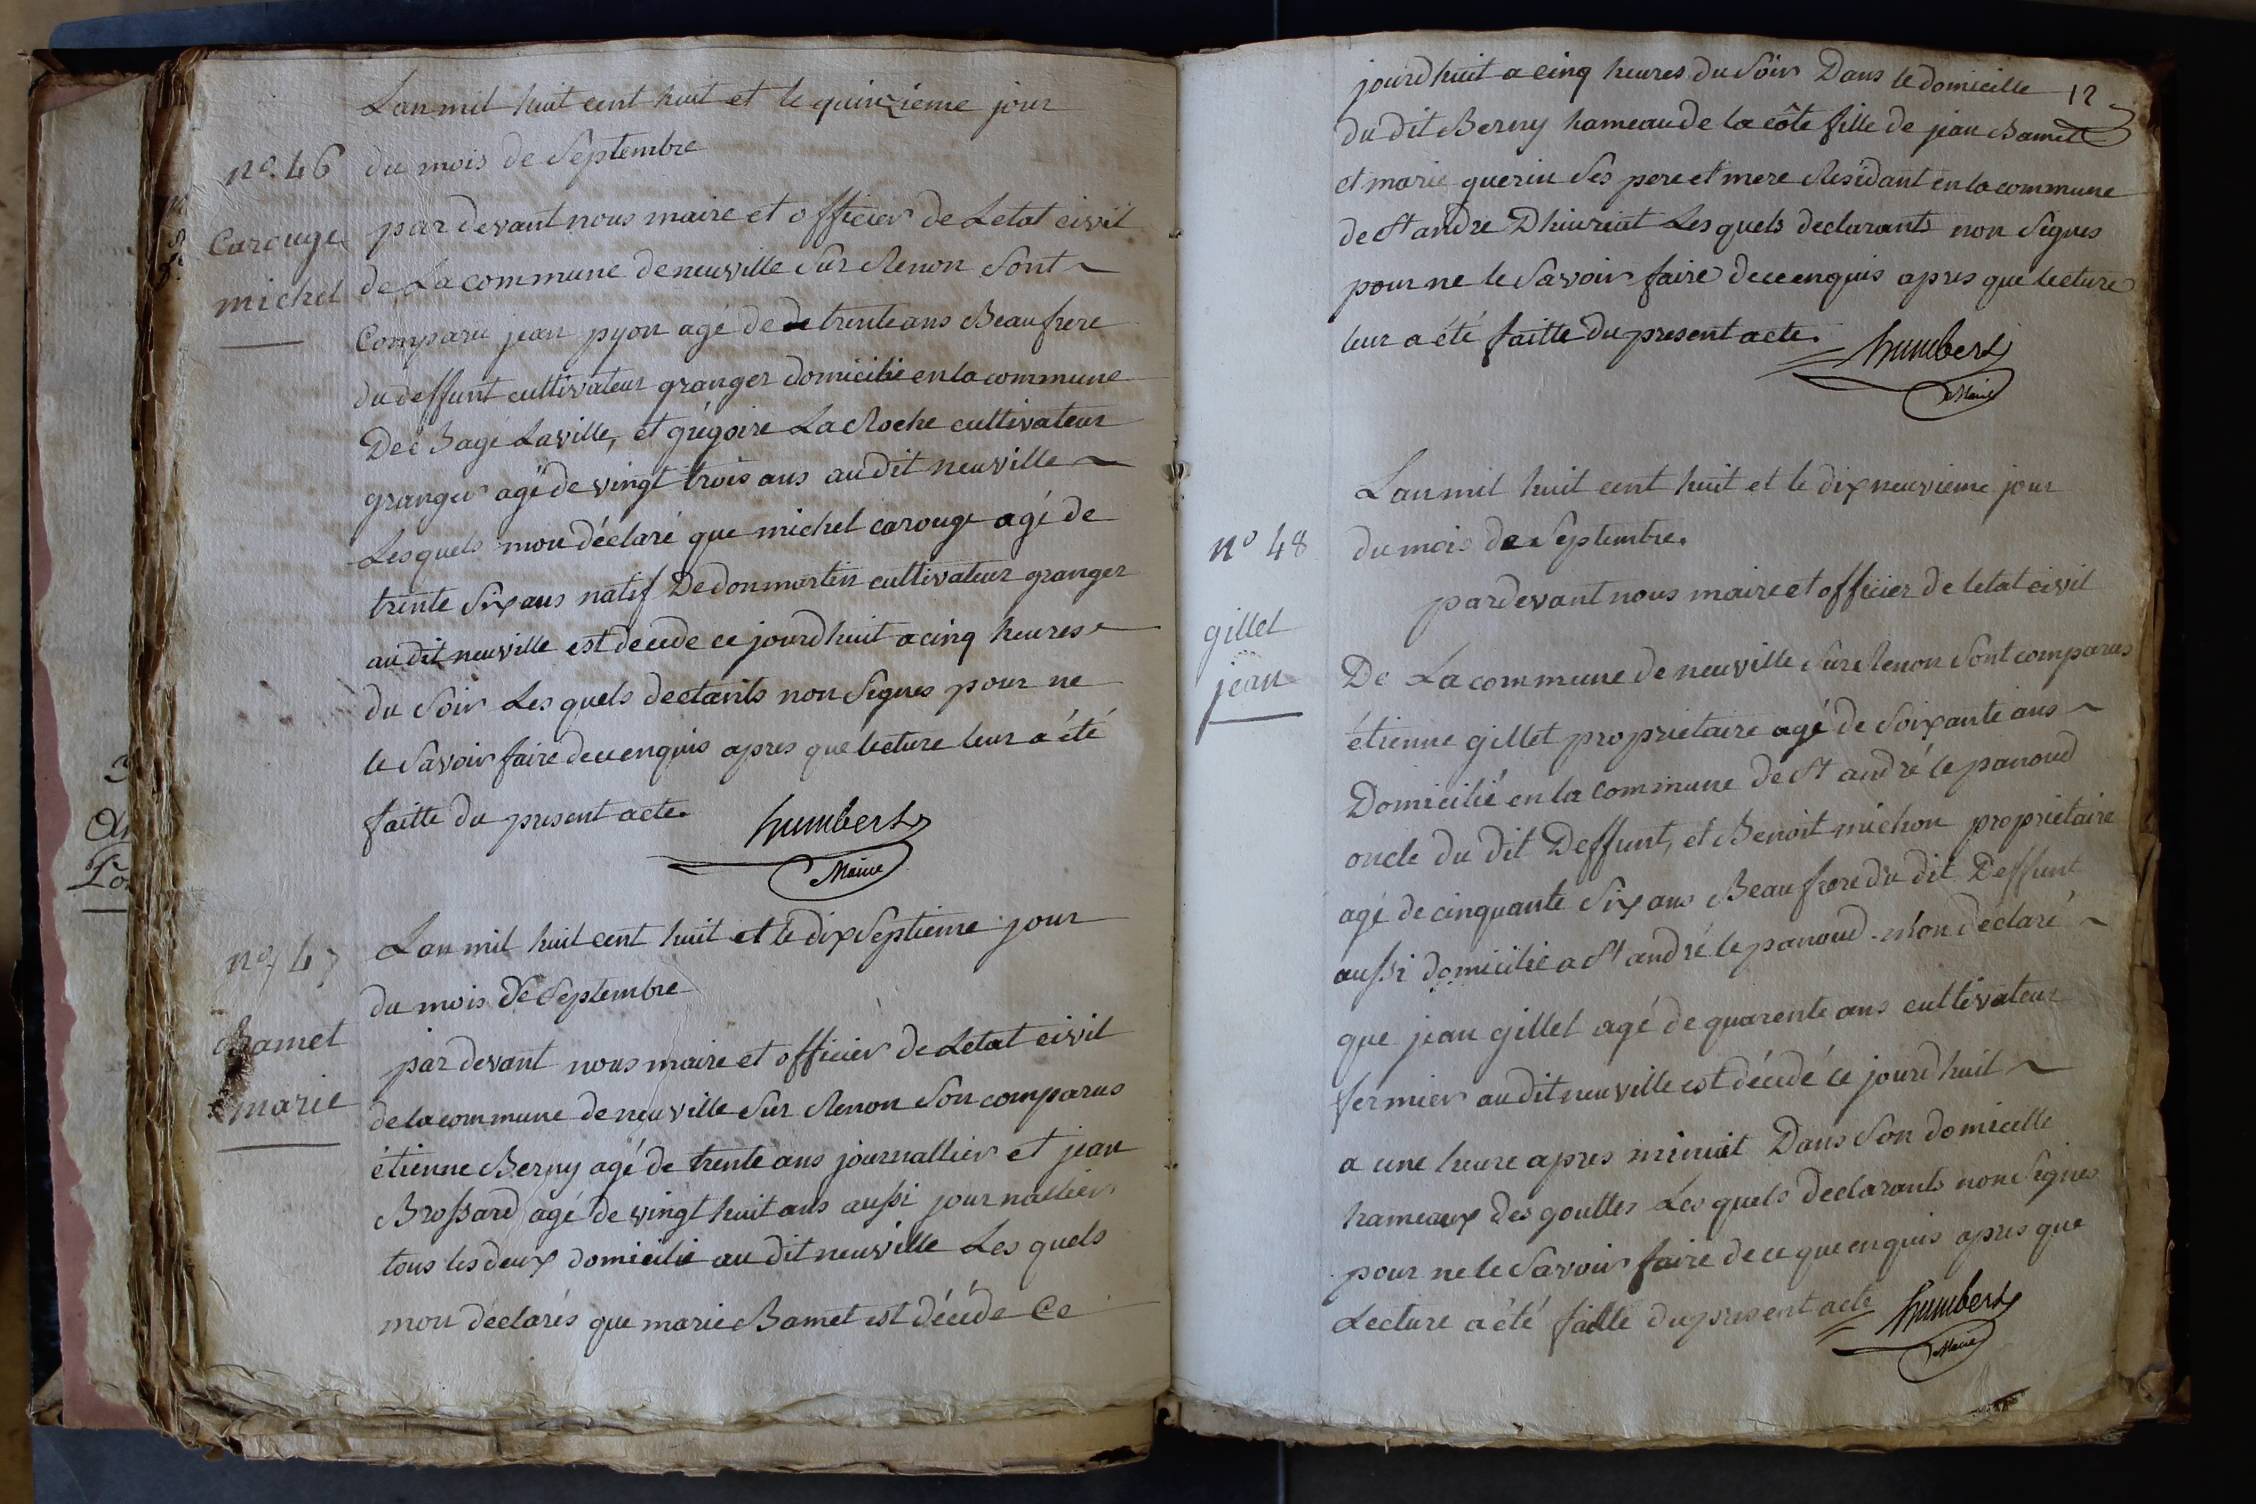 Lan mil huit cent huit et le quinzieme jour
no. 46 du mois de Septembre
Carouge
michel
par devant nous maire et officier de Letat civil
de La commune de neuville Sur Renon Sont
Comparu jean pyon agé de de trente ans Beaufrere
du deffunt cultivateur granger domicilié en la commune
De Bagé Laville, et grégoire La Roche cultivateur
granger agé de vingt trois ans audit neuville
Lesquels mon déclaré que michel carouge agé de
trente Six ans natif De donmartin cultivateur granger
audit neuville est decede ce jourdhuit a cinq heures
du Soir Les quels dectants non Signes pour ne
le Savoir faire de ce enquis apres que lecture leur a été
faitte du present acte.
humbert
Maire
no 47
Bamet
marie
Lan mil huit cent huit et le dix Septieme jour
du mois de Septembre
par devant nous maire et officier de Letat civil
de la commune de neuville Sur Renon Son comparus
étienne Berny agé de trente ans journallier et jean
Brossard agé de vingt huit ans aussi journallier
tous les deux domicilié au dit neuville Les quels
mon declarés que marie Bamet est décéde Ce
12
jourdhuit a cinq heures du Soir Dans le domicille
du dit Berny hameau de la côte fille de jean Bamet
et marie guerin Ses pere et mere Residant en la commune
de St andre Dhiuriat Les quels declarants non Signes
pour ne le Savoir faire de ce enquis apres que lecture
leur a été faitte du present acte.
humbert
Maire
no 48
gillet
jean
Lan mil huit cent huit et le dix neuvieme jour
du mois de Septembre.
par devant nous maire et officier de letat civil
De La commune de neuville Sur Renon Sont comparus
étienne gillet proprietaire agé de Soixante ans
Domicilié en la commune de St andré le panoud
oncle du dit Deffunt, et Benoit michon proprietaire
agé de cinquante Six ans Beaufrere du dit Deffunt
aussi domicilié a St andré le panoud mon déclaré
que jean gillet agé de quarente ans cultivateur
fermier au dit neuville est décédé ce jourdhuit
a une heure apres minuit Dans Son domicelle
hameaux des gouttes Les quels declarants non Signes
pour ne le Savoir faire de ce que enquis apres que
Lecture a été faitte du present acte
humbert
Maire